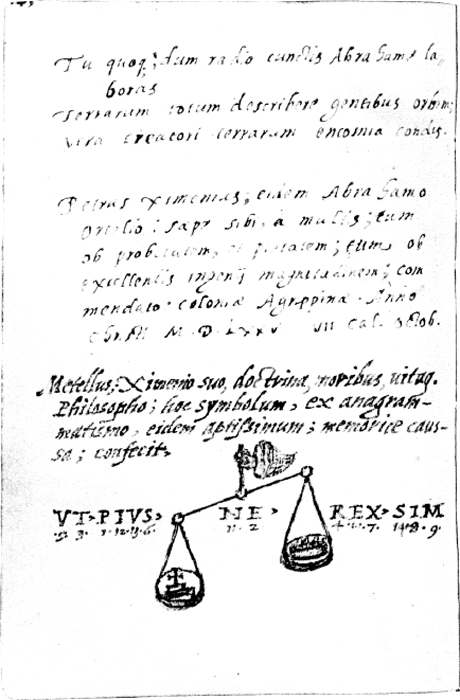 Tu quoq; dum radio cunctis Abrahame la-
boras
Terrarum totum describere gentibus orbem;
Viva creatori terrarum encomia condis.
Petrus Ximenius; eidem Abrahamo
Ortelio; sæpe sibi, a multis; tum
ob probitatem, et pietatem; tum, ob
excellentis ingenij magnitudinem; com
mendato. Coloniæ Agrippinæ. Anno
Christi M. D. LXXV VII Cal. Octob.
Metellus, Ximenio suo, doctrina, moribus, vitaq.
Philosopho; hoc symbolum, ex anagram-
matismo, eidem aptissimum; memoriæ caus-
sa; confecit.
VT PIVS NE REX SIM